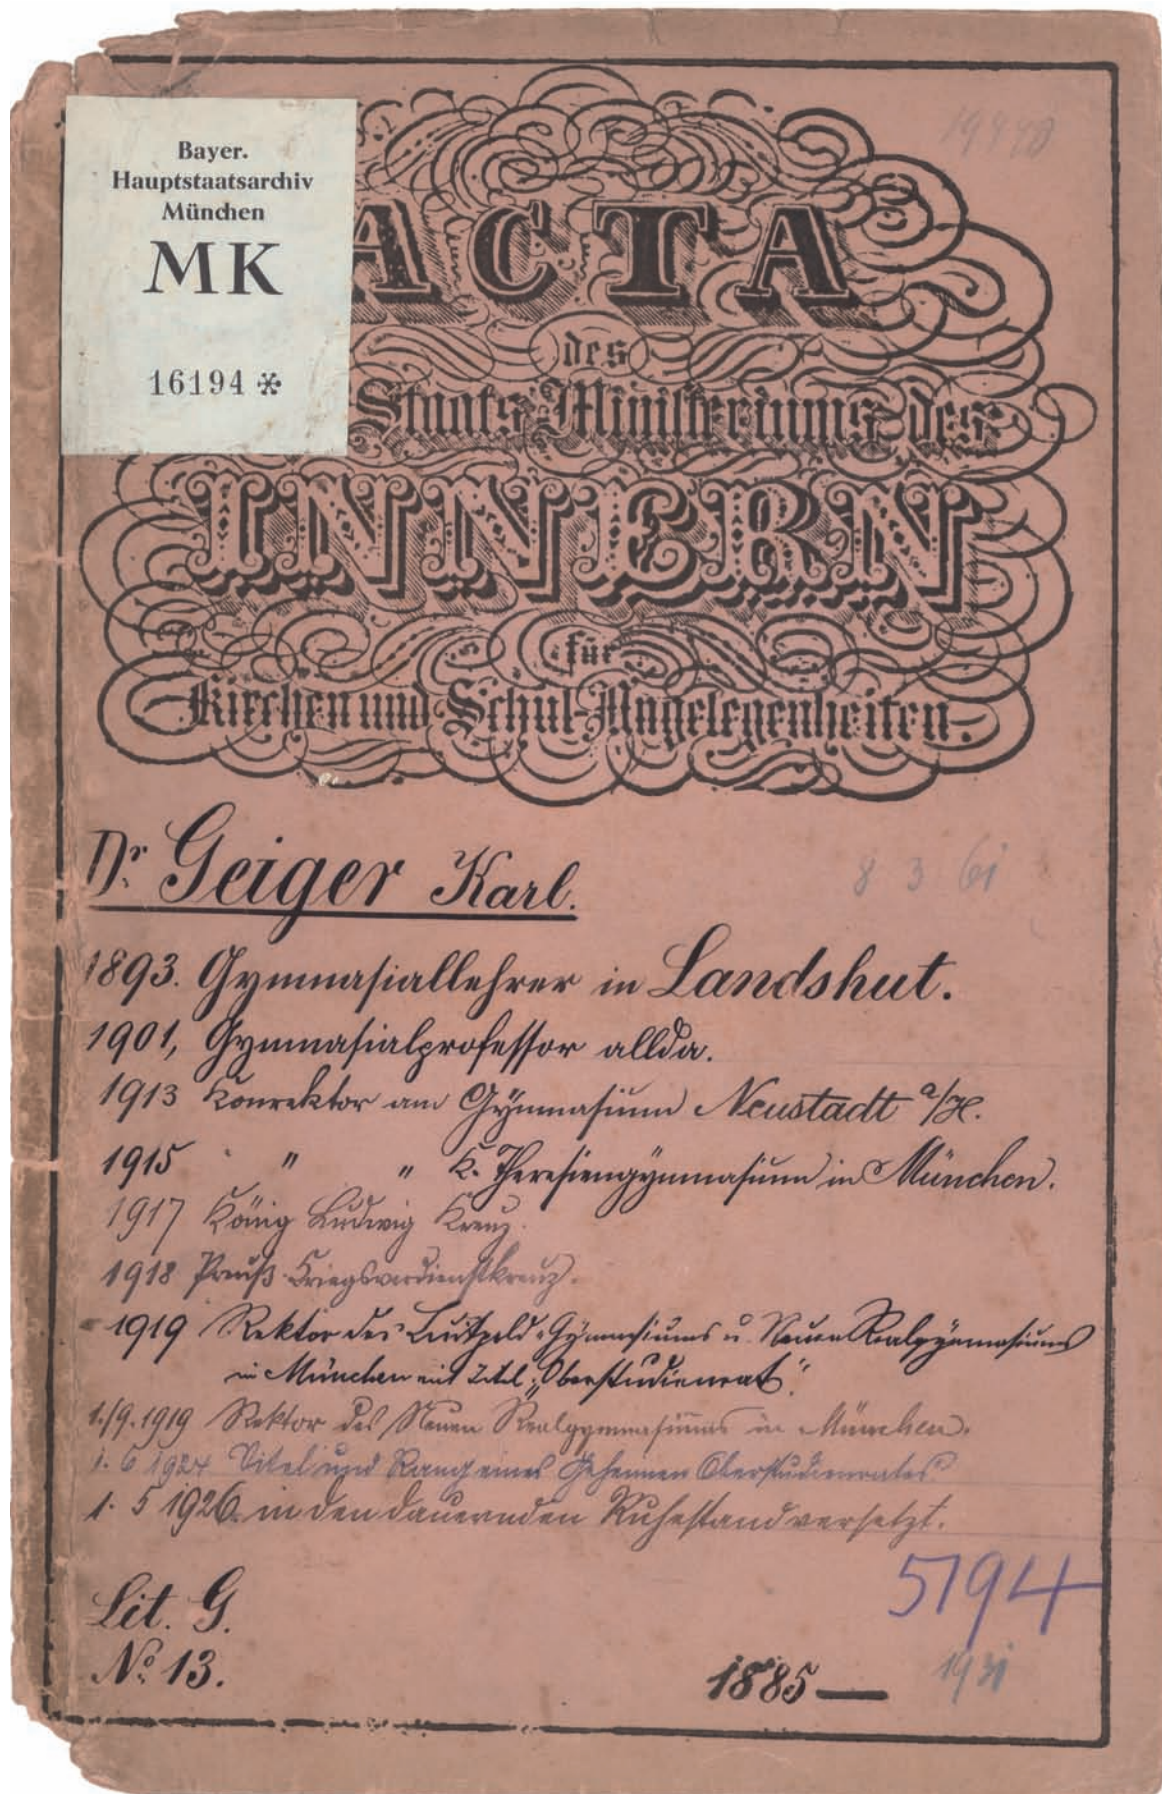 19440
Bayer.
Hauptstaatsarchiv
München
MK
16194 *
ACTA
des
Staats-Ministeriums des
INNERN
für
Kirchen und Schul-Angelegenheiten.
Dr. Geiger Karl.
8 3 61
1893. Gymnasiallehrer in Landshut.
1901, Gymnasialprofessor allda.
1913 Konrektor am Gymnasium Neustadt a/H.
1915 " " K. Theresiengymnasium in München.
1917 König Ludwig Kreuz.
1918 Preuß. Kriegsverdienstkreuz.
1919 Rektor des Luitpold-Gymnasiums u. Neuen Realgymnasiums
in München mit Titel "Oberstudienrat".
1./9. 1919 Rektor des Neuen Realgymnasiums in München.
1. 6 1924 Titel und Rang eines Geheimen Oberstudienrates
1. 5 1926. in den dauernden Ruhestand versetzt.
5794
Lit. G.
No. 13.
1885 — 1931